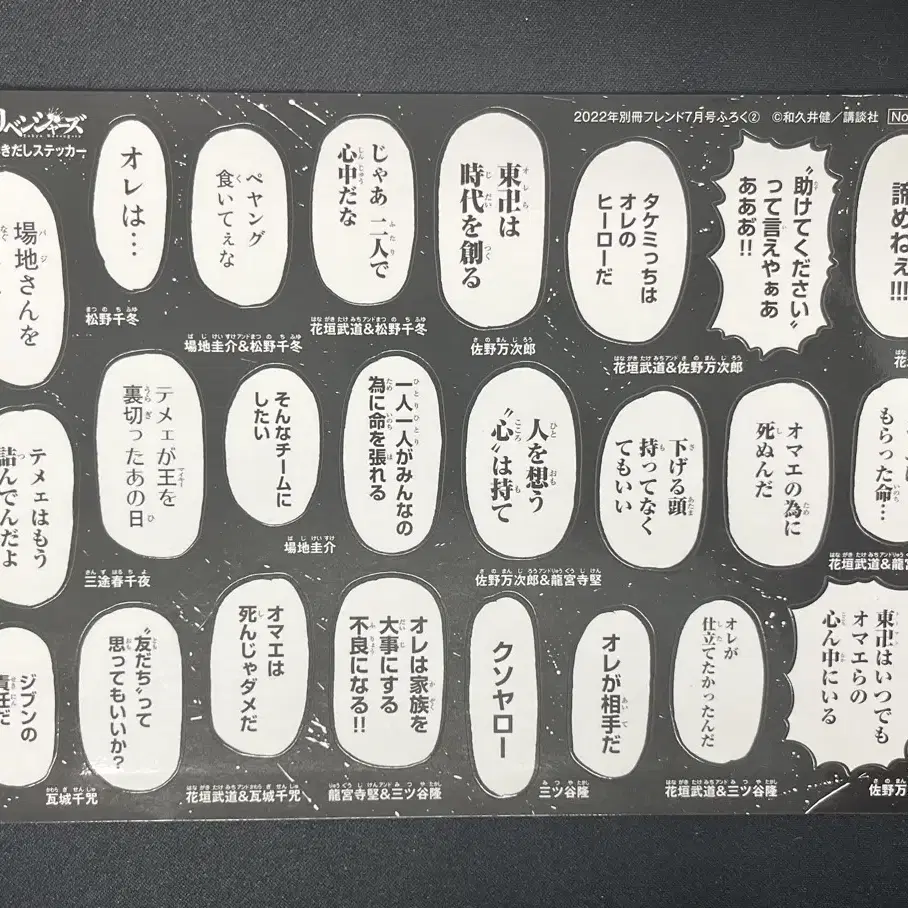 リベンジャーズ
きだしステッカー
2022年別冊フレンド7月号ふろく② ©和久井健/講談社 No
場地さんを
オレは…
松野千冬
ペヤング
食いてぇな
場地圭介&松野千冬
じゃあ 二人で
心中だな
花垣武道&松野千冬
東卍は
時代を創る
佐野万次郎
タケミっちは
オレの
ヒーローだ
花垣武道&佐野万次郎
〝助けてください〟
って言えやぁあ
ああぁ!!
諦めねぇ!!!
テメェはもう
詰んでんだよ
テメェが王を
裏切ったあの日
三途春千夜
そんなチームに
したい
場地圭介
一人一人がみんなの
為に命を張れる
人を想う
〝心〟は持て
佐野万次郎&龍宮寺堅
下げる頭
持ってなく
てもいい
オマエの為に
死ぬんだ
もらった命…
花垣武道&龍宮
ジブンの
責任だ
〝友だち〟って
思ってもいいか?
瓦城千咒
オマエは
死んじゃダメだ
花垣武道&瓦城千咒
オレは家族を
大事にする
不良になる!!
龍宮寺堅&三ツ谷隆
クソヤロー
オレが相手だ
三ツ谷隆
オレが
仕立てたかったんだ
花垣武道&三ツ谷隆
東卍はいつでも
オマエらの
心ん中にいる
佐野万